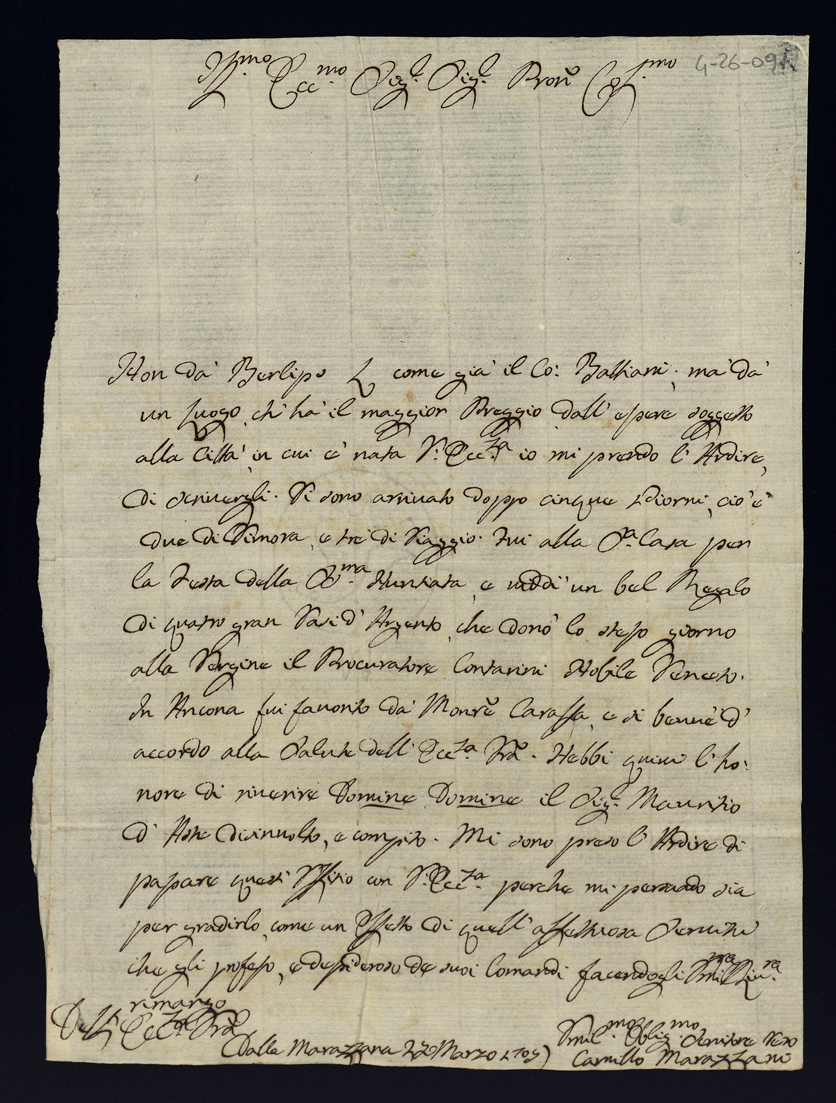 Ill.mo Ecc.mo Sig.r Sig.r Pron Col.mo
4-26-091
Non da' Berlipo come gia' il Co: Balliani, ma' da'
un luogo, ch' ha' il maggior Preggio dall' essere soggetto
alla Città, in cui e' nata V. Ecc.za io mi prendo l' Ardire,
di scriuergli. Si sono arriuato doppo cinque Giorni, cio' e'
due di Dimora, e tre' di Viaggio. Fui alla S.a Casa per
la Festa della SS.ma Nuntiata, e uiddi' un bel Regalo
di quatro gran Vasi d' Argento, che donò lo stesso giorno
alla Vergine il Procuratore Contarini Nobile Veneto.
In Ancona fui fauorito da' Monre Caraffa, e si beuue' d'
accordo alla Salute dell' Ecc.za Vra. Hebbi quiui l' ho:
nore di riuerire Domine Domine il Sig.r Mauritio
d' Aste disinuolto, e compito. Mi sono preso l' Ardire di
passare questi Offitio con V. Ecc.za perche mi persuado sia
per gradirlo, come un Effetto di quell' affettuosa Seruitù
che gli professo, e desideroso de suoi Comandi facendogli Umil.ma Riu.za
rimango
Dell' Ecc.za Vra
Dalla Marazzana 27 Marzo 1709
Umil.mo Oblig.mo Seruitore Vero
Camillo Marazzani